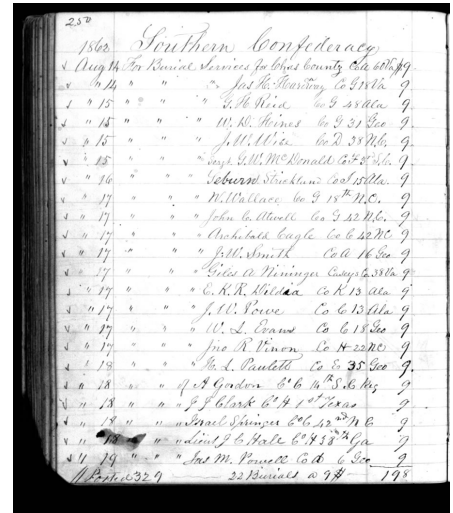 250
1862 Southern Confederacy
Aug 14 For Burial Services for Chas County Co A 60 Va 9
" 14 " " " Jas H. Hardway Co G 18 Va 9
" 15 " " " G. H. Reid Co G 48 Ala 9
" 15 " " " W. D. Hines Co G 31 Geo 9
" 15 " " " J. W. Wise Co D 38 N.C. 9
" 15 " " " G. W. McDonald Co F S.C. 9
" 16 " " " Seburn Strickland Co I 15 Ala. 9
" 17 " " " W. Wallace Co G 18th N.C. 9
" 17 " " " John C. Atwell Co G 42 N.C. 9
" 17 " " " Archibald Cagle Co C 42 NC 9
" 17 " " " J. W. Smith Co A 16 Geo 9
" 17 " " " Giles A Nininger Caseys Co. 38 Va 9
" 17 " " " E. K. R. Co K 13 Ala 9
" 17 " " " J. W. Powe Co C 13 Ala 9
" 17 " " " W. L. Evans Co C 18 Geo 9
" 17 " " " Jno R Vinon Co H 22 NC 9
" 18 " " " H. L. Paulett Co E 35 Geo 9.
" 18 " " of A Gordon Co C 14th S.C. Reg 9
" 18 " " " J J Clark Co H 1st Texas 9
" 18 " " " Israel Springer Co C 42nd N C 9
" 18 " " Lieut J. C. Hale Co H Ga 9
" 19 " " " Jas M. Powell Co A 6 Geo 9
Posted 329 22 Burials a 9$ 198